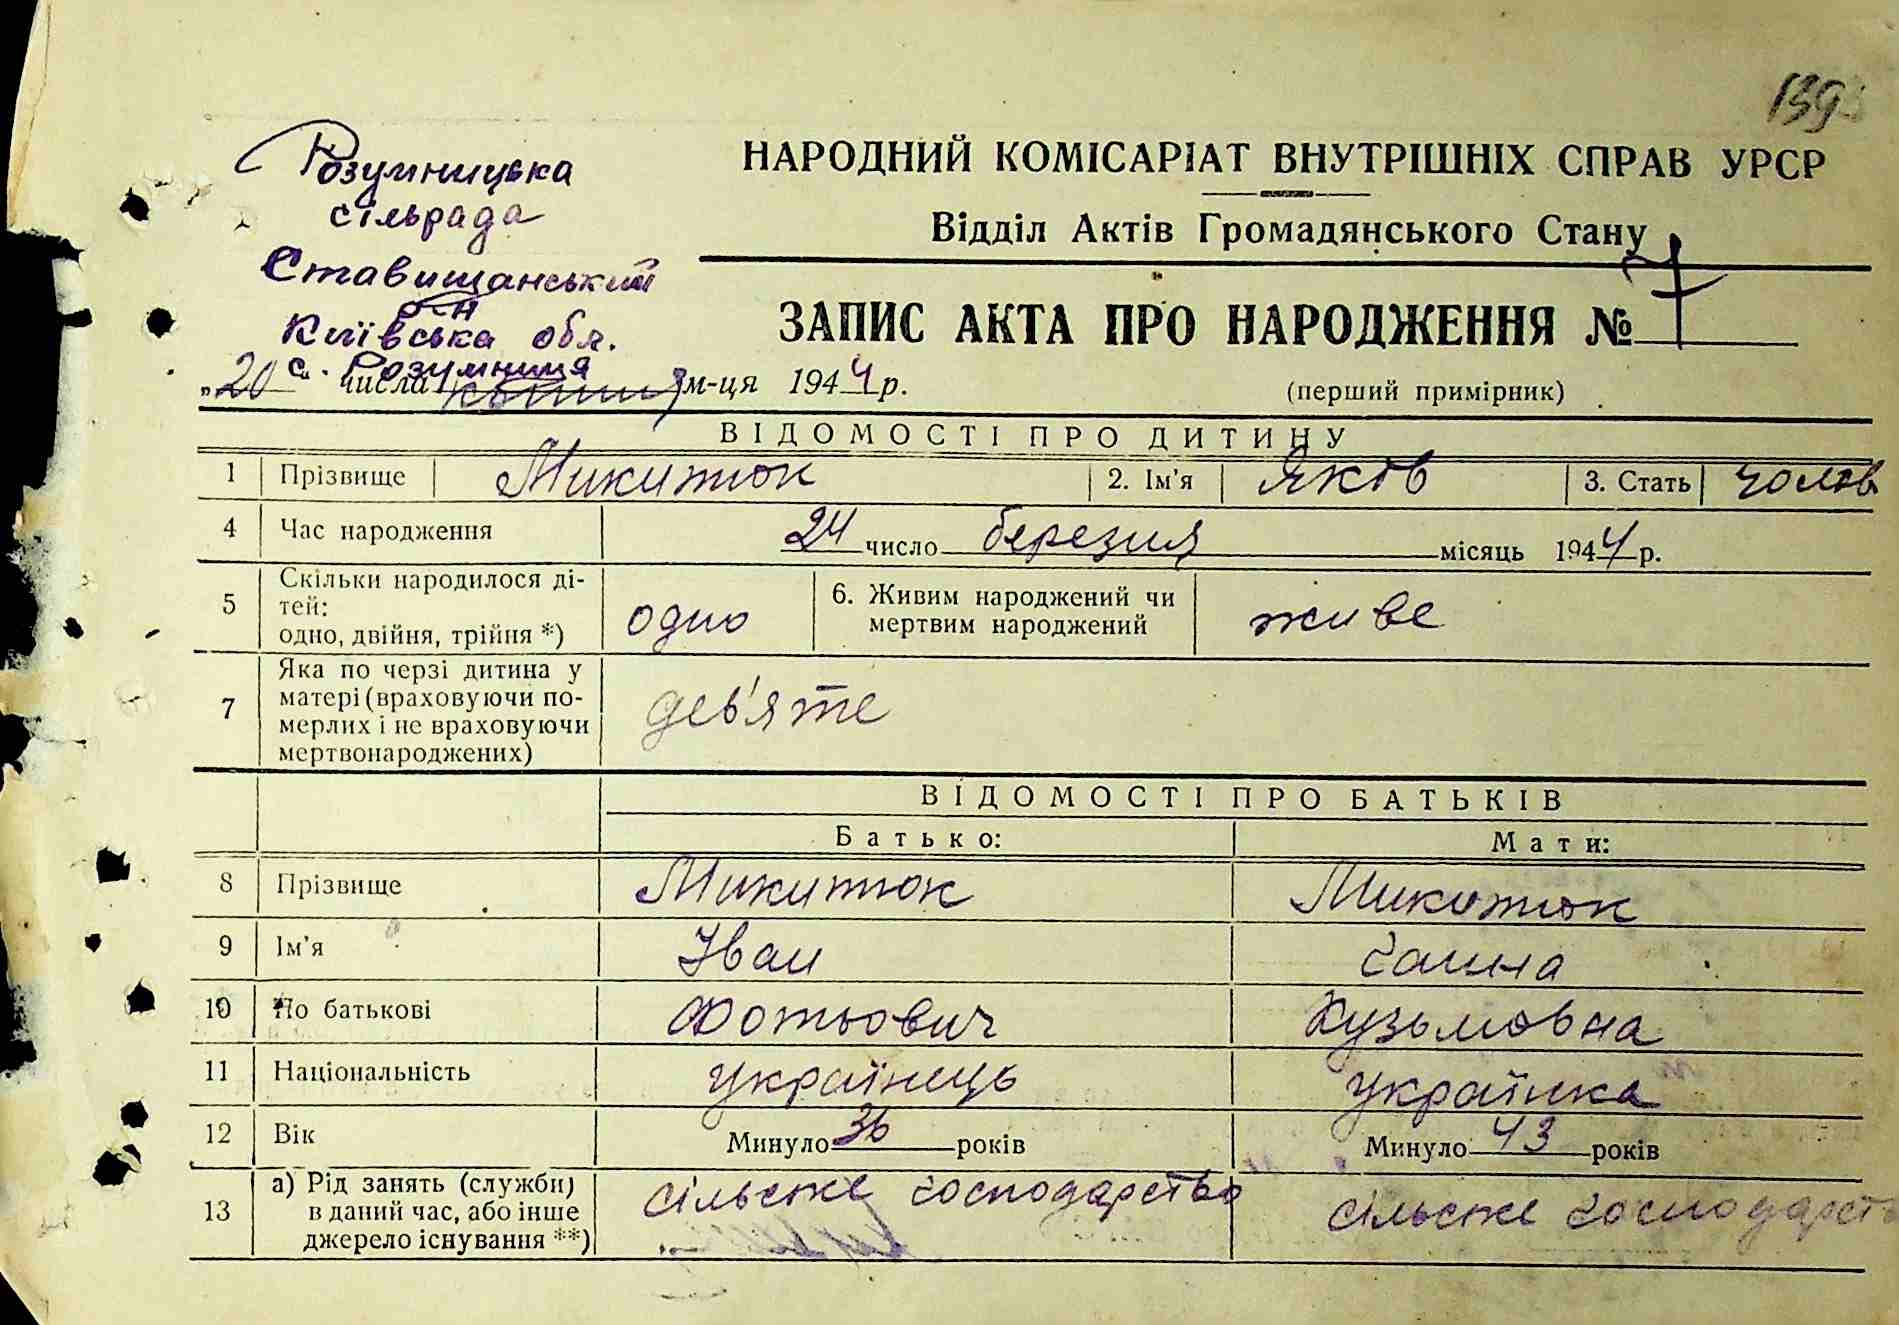 139
Розумницька
сільрада
Ставищанський
р-н
Київська обл.
с. Розумниця
НАРОДНИЙ КОМІСАРІАТ ВНУТРІШНІХ СПРАВ УРСР
Відділ Актів Громадянського Стану
ЗАПИС АКТА ПРО НАРОДЖЕННЯ № 7
„20 числа квітня м-ця 1944 р.
(перший примірник)
ВІДОМОСТІ ПРО ДИТИНУ
1 Прізвище Микитюк 2. Ім'я Яків 3. Стать чолов
4 Час народження 24 число березня місяць 1944 р.
5 Скільки народилося ді-
тей:
одно, двійня, трійня *) одно
6. Живим народжений чи
мертвим народжений живе
7 Яка по черзі дитина у
матері (враховуючи по-
мерлих і не враховуючи
мертвонароджених) дев'яте
ВІДОМОСТІ ПРО БАТЬКІВ
Батько: Мати:
8 Прізвище Микитюк Микитюк
9 Ім'я Іван Ганна
10 По батькові Фотьович Кузьмовна
11 Національність українець українка
12 Вік Минуло 36 років Минуло 43 років
13 а) Рід занять (служби)
в даний час, або інше
джерело існування **) сільське господарство сільське господарств